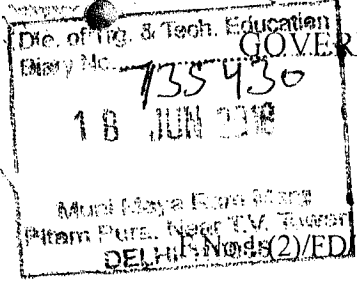 Dte. of Trg. & Tech. Education
GOVER
Diary No. 735430
18 JUN 2018
Muni Maya Ram Marg
Pitam Pura, Near T.V. Tower
DELHI
(2)/ED